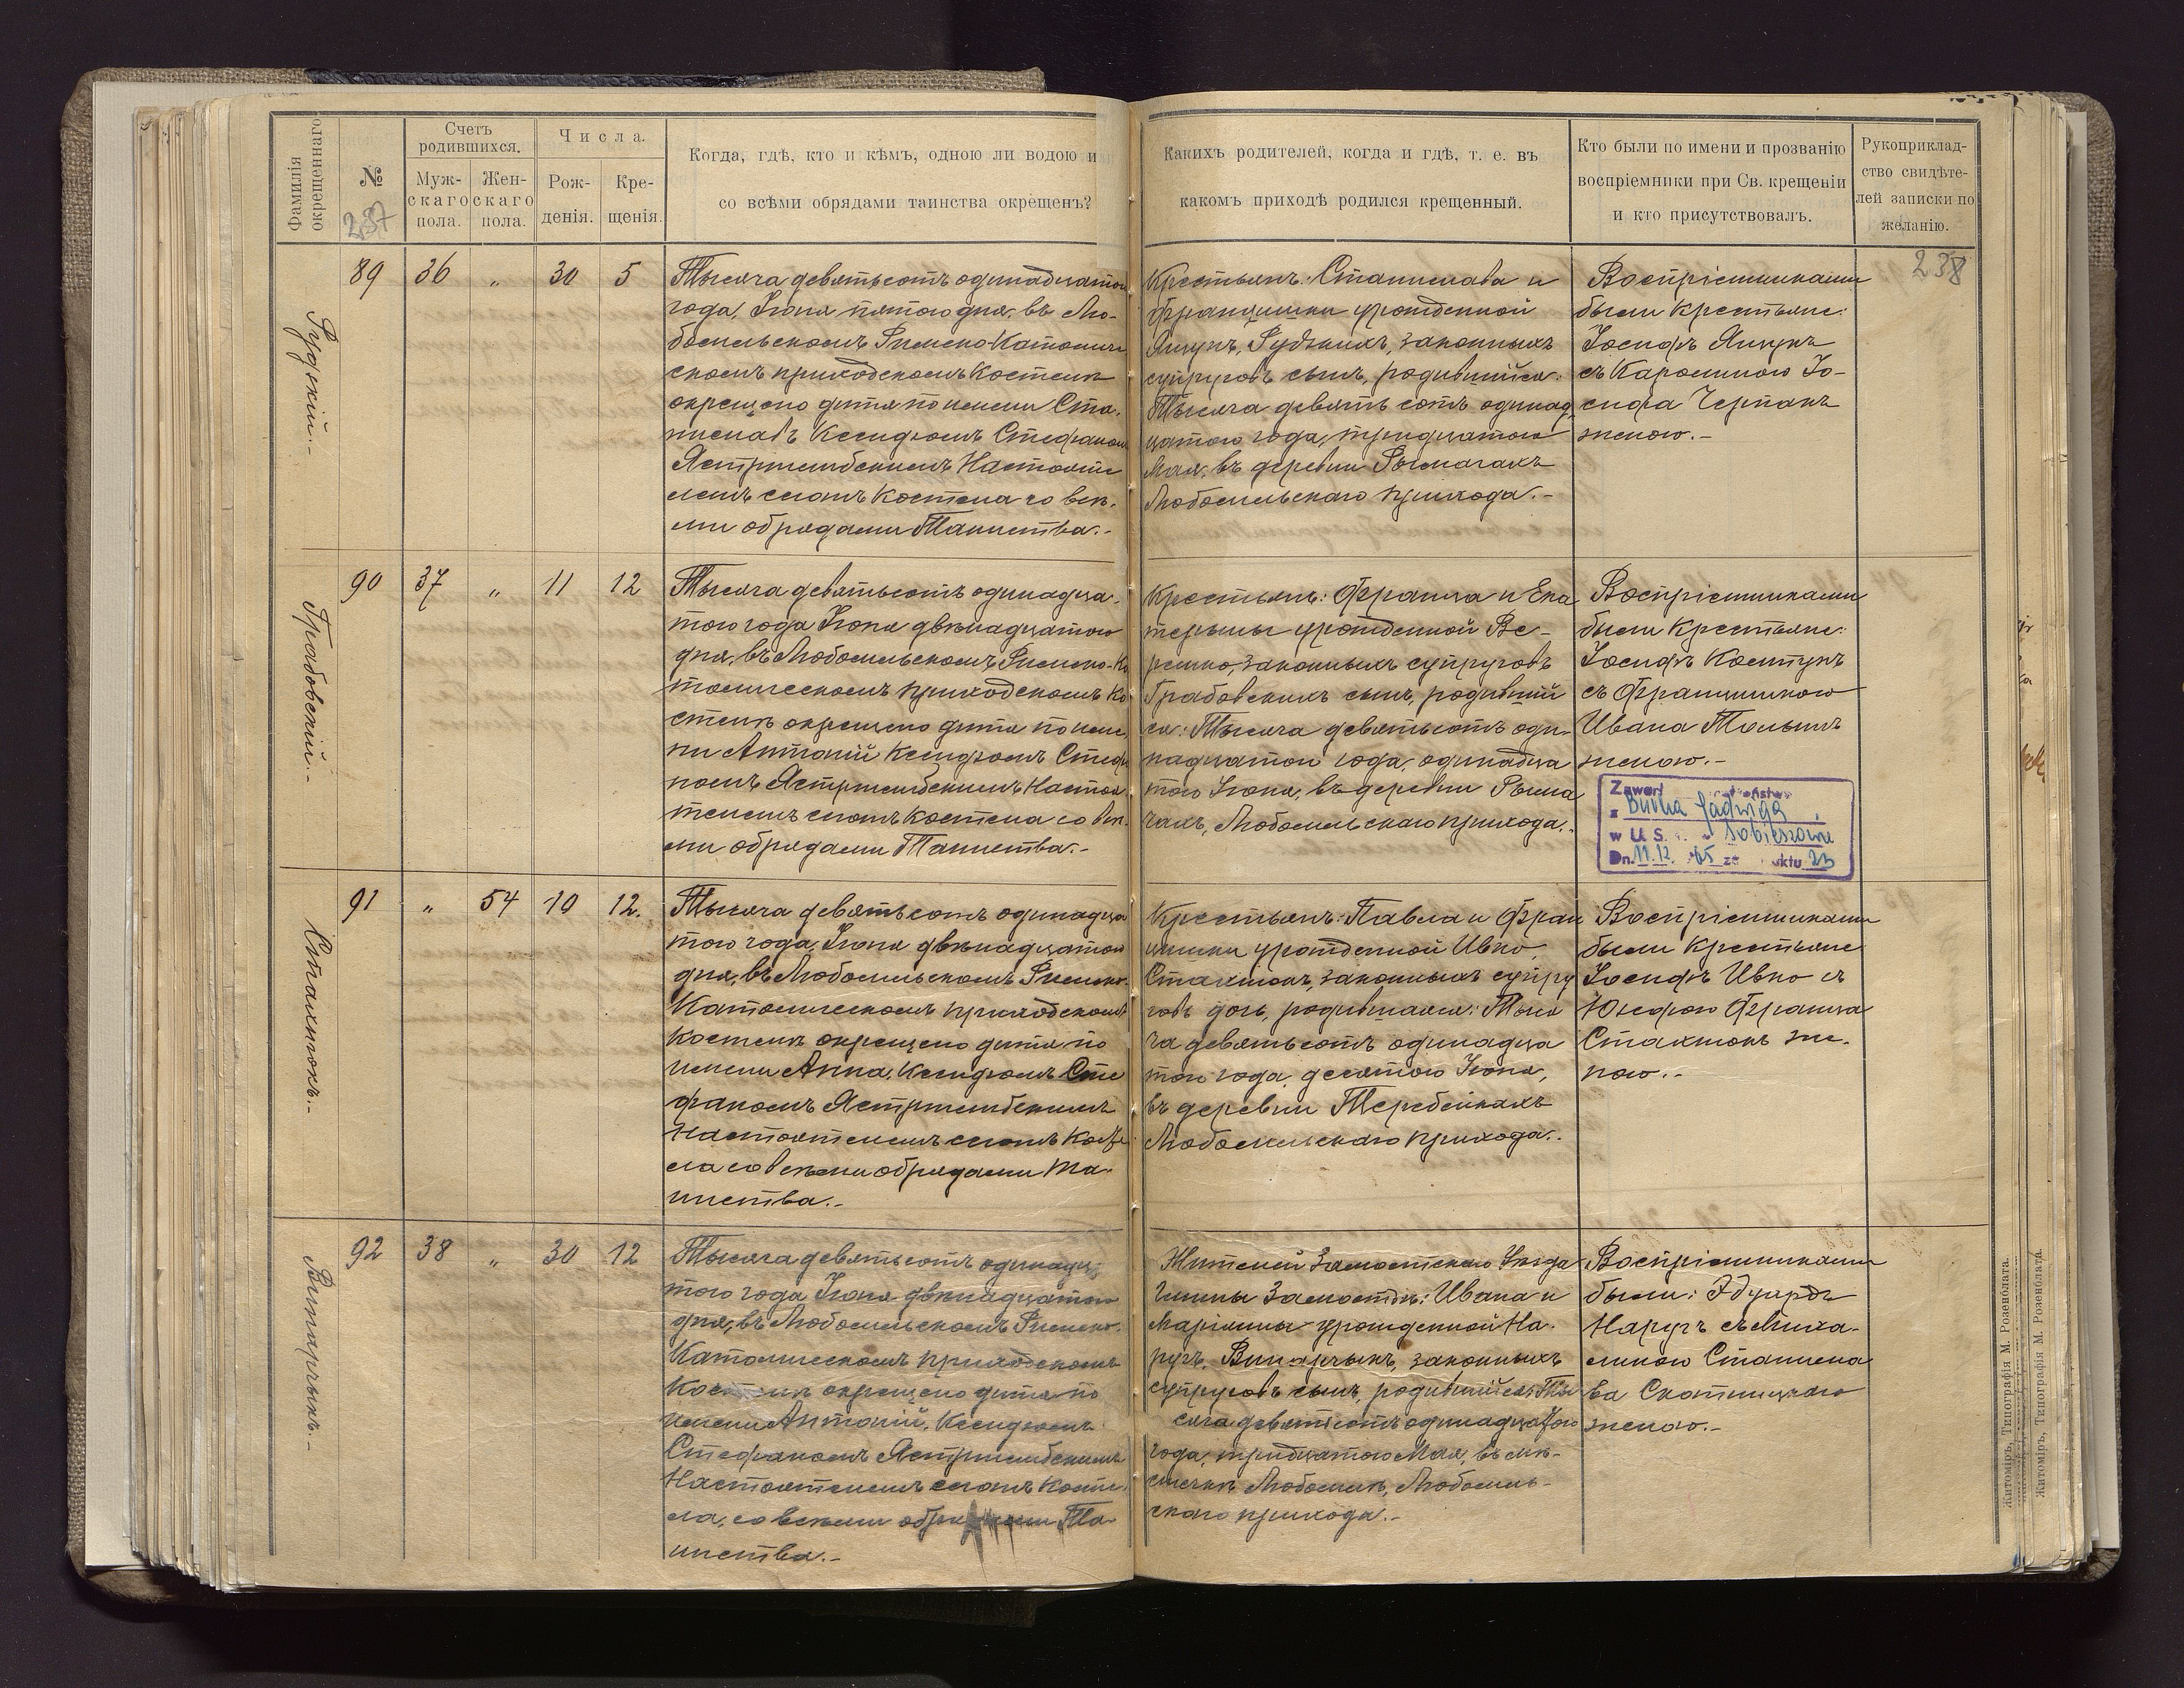 Фамилія
окрещеннаго
№
237
Счетъ
родившихся.
Муж-
скаго
пола.
Жен-
скаго
пола.
Числа.
Рож-
денія.
Кре-
щенія.
Когда, гдѣ, кто и кѣмъ, одною ли водою и
со всѣми обрядами таинства окрещенъ?
Какихъ родителей, когда и гдѣ, т. е. въ
какомъ приходѣ родился крещенный.
Кто были по имени и прозванію
воспріемники при Св. крещеніи
и кто присутствовалъ.
Рукоприклад-
ство свидѣте-
лей записки по
желанію.
238
Рудзкій.-
89 36 „ 30 5
Тысяча девятьсотъ одинадцатого
года, Іюня пятого дня, въ Лю-
бомльскомъ Римско-Католиче
скомъ приходскомъ Костелѣ
окрещено дитя по имени Ста-
ниславъ Ксендзомъ Стефаномъ
Ястржембскимъ Настояте
лемъ сего Костела со всѣ-
ми обрядами Таинства.-
Крестьянъ: Станислава и
Францишки урожденной
Янчукъ, Рудзкихъ, законныхъ
супруговъ сынъ, родившійся:
Тысяча девятьсотъ одинад
цатого года, тридцатого
Мая, въ деревни Рымачахъ
Любомльскаго прихода.-
Воспріемниками
были крестьяне:
Іосифъ Янчукъ
съ Каролиною Іо-
сифа Черпакъ
женою.-
Грабовскій.-
90 37 „ 11 12
Тысяча девятьсотъ одинадца-
того года Іюня двѣнадцатого
дня, въ Любомльскомъ Римско-Ка
толическомъ приходскомъ Ко
стелѣ окрещено дитя по име
ни Антоній Ксендзомъ Стефа
номъ Ястржембскимъ Настоя
телемъ сего Костела со всѣ-
ми обрядами Таинства.-
Крестьянъ: Франца и Ека
терины урожденной Ве-
ремко, законныхъ супруговъ
Грабовскихъ сынъ, родившій
ся: Тысяча девятьсотъ оди-
надцатого года, одинадца
того Іюня, въ деревни Рыма
чахъ, Любомльскаго прихода.-
Воспріемниками
были Крестьяне:
Іосифъ Костукъ
съ Францишкою
Ивана
женою.-
Zawarł
z BuJadwigą
w U. S. Sobieszowie
Dn. 11.12. 45 za aktu 23
Стахнюкъ.-
91 „ 54 10 12.
Тысяча девятьсотъ одинадца
того года, Іюня двѣнадцатого
дня, въ Любомльскомъ Римско-
Католическомъ приходскомъ
Костелѣ окрещено дитя по
имени Анна, Ксендзомъ Сте
фаномъ Ястржембскимъ
Настоятелемъ сего Косте
ла со всѣми обрядами Та-
инства.-
Крестьянъ: Павла и Фран
цишки урожденной Ивко,
Стахнюкъ, законныхъ супру
говъ дочь, родившаяся: Тыся
ча девятьсотъ одинадца
того года, десятого Іюня,
въ деревни Теребейкахъ
Любомльскаго прихода.-
Воспріемниками
были Крестьяне
Іосифъ Ивко съ
Юзефою Франца
Стахнюкъ же-
ною.-
Винярчыкъ.-
92 38 „ 30 12
Тысяча девятьсотъ одинадца
того года Іюня двѣнадцатого
дня, въ Любомльскомъ Римско-
Католическомъ приходскомъ
Костелѣ окрещено дитя по
имени Антоній, Ксендзомъ
Стефаномъ Ястржембскимъ
Настоятелемъ сего Косте
ла, со всѣми обрядами Та-
инства.-
Жителей Замостскаго Уѣзда
Гмины Замостье: Ивана и
Маріянны урожденной На-
ругъ, Винярчыкъ, законныхъ
супруговъ сынъ, родившійся: Ты
сяча девятьсотъ одинадцатого
года, тридцатого Мая, въ мѣ-
стечкѣ Любомлѣ, Любомль-
скаго прихода.-
Воспріемниками
были: Эдуардъ
Наругъ съ Миха-
линою Станисла
ва Скотницкого
женою.-
Житоміръ, Типографія М. Розенблата.
Житоміръ, Типографія М. Розенблата.